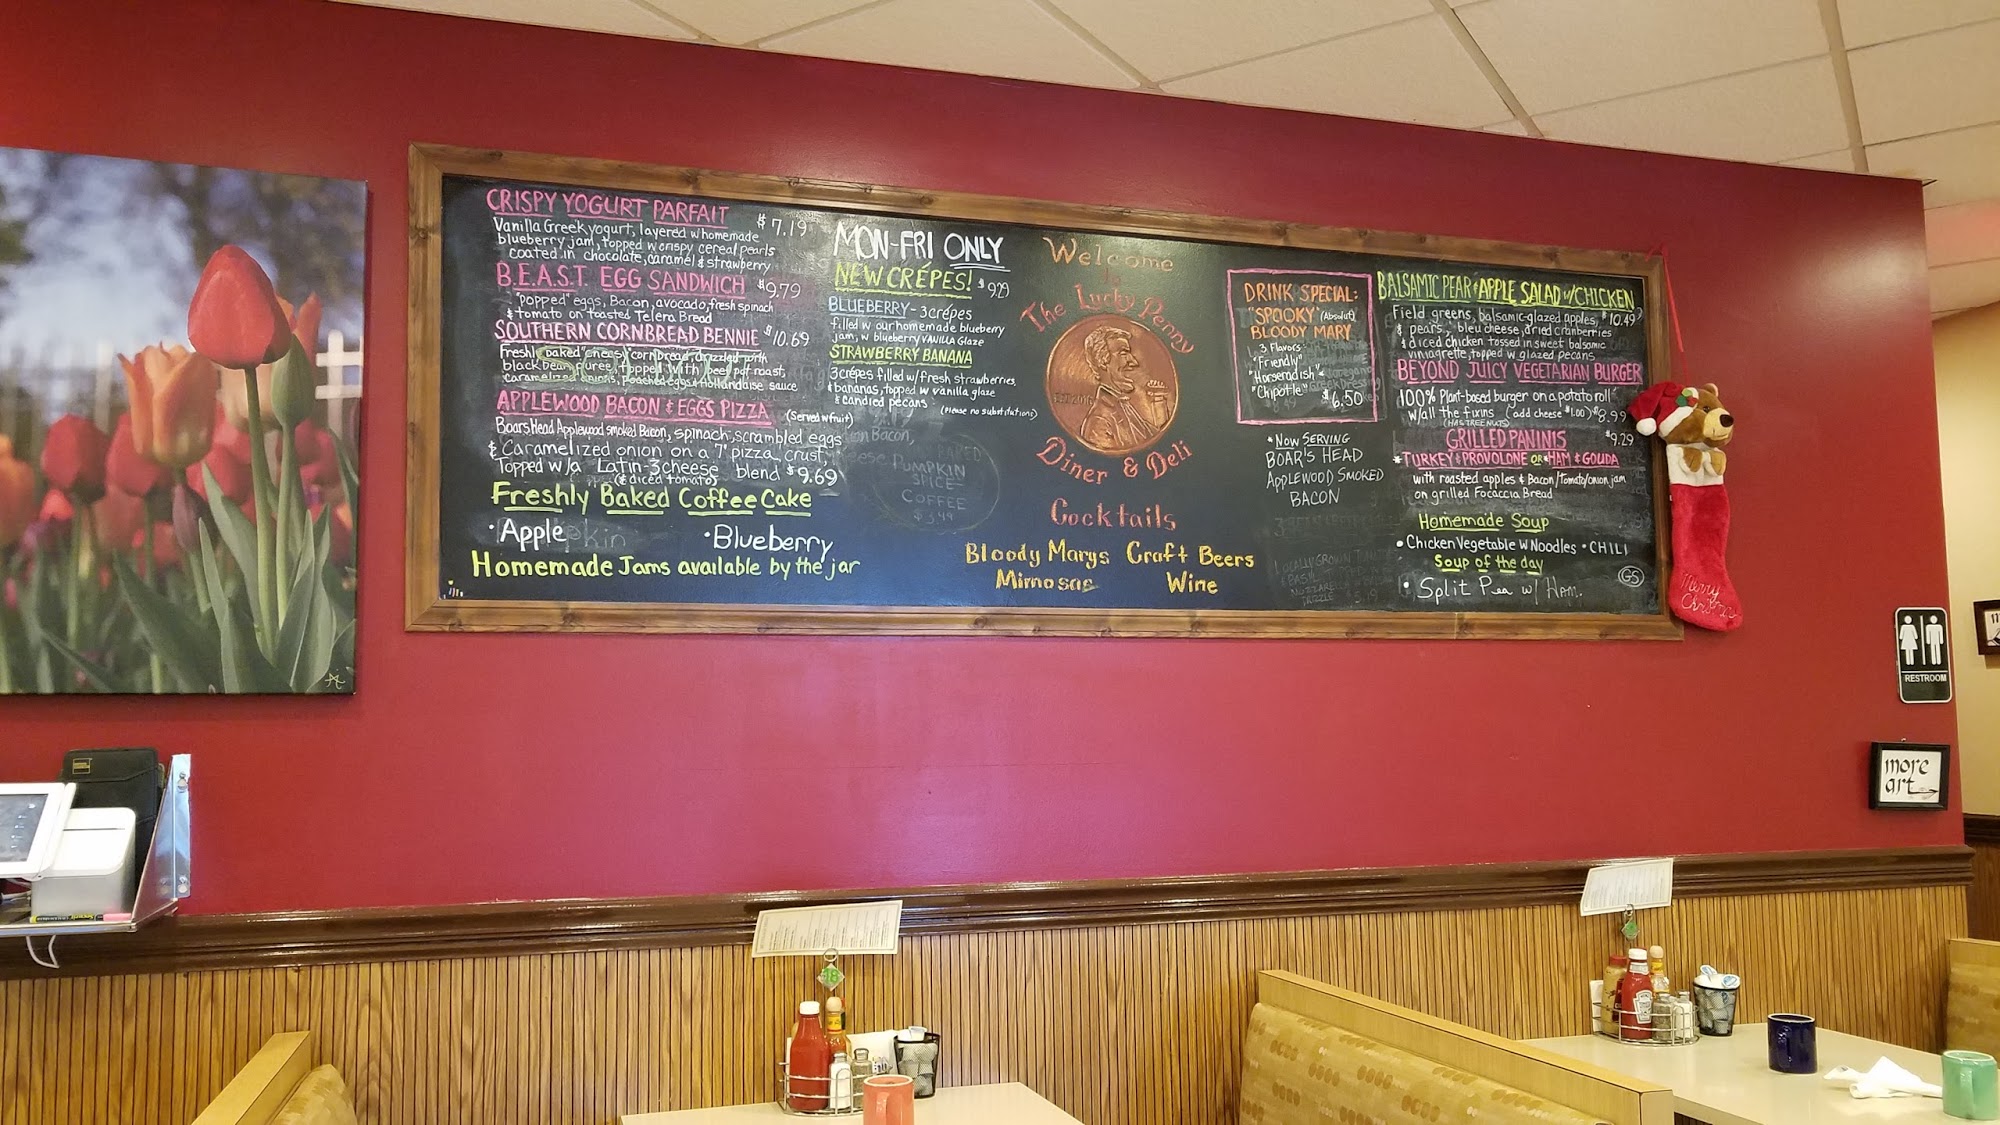 CRISPY YOGURT PARFAIT $7.19
Vanilla Greek yogurt, layered w homemade
blueberry jam, topped w crispy cereal pearls
coated in chocolate, caramel & strawberry
B.E.A.S.T. EGG SANDWICH $9.79
"popped" eggs, Bacon, avocado, fresh spinach
& tomato on toasted Telera Bread
SOUTHERN CORNBREAD BENNIE $10.69
Freshly baked "cheesy" cornbread drizzled with
black bean puree, topped with beef pot roast,
caramelized onions, poached eggs & hollandaise sauce
APPLEWOOD BACON & EGGS PIZZA (Served w fruit)
Boars Head Applewood smoked Bacon, spinach, scrambled eggs
& Caramelized onion on a 7" pizza crust,
Topped w/a Latin-3 cheese blend $9.69
(& diced tomato)
Freshly Baked Coffee Cake
• Apple • Blueberry
Homemade Jams available by the jar
MON-FRI ONLY
NEW CRÉPES! $9.29
BLUEBERRY - 3 crépes
filled w our homemade blueberry
jam, w blueberry VANILLA Glaze
STRAWBERRY BANANA
3 crépes filled w/ fresh strawberries,
& bananas, topped w vanilla glaze
& candied pecans (Please no substitutions)
PUMPKIN
SPICE
COFFEE
$3.49
Welcome
to
The Lucky Penny
Diner & Deli
Cocktails
Bloody Marys Craft Beers
Mimosas Wine
DRINK SPECIAL:
"SPOOKY" (Absolut)
BLOODY MARY
3 Flavors
"Friendly"
"Horseradish"
"Chipotle" $6.50
*NOW SERVING
BOAR'S HEAD
APPLEWOOD SMOKED
BACON
BALSAMIC PEAR & APPLE SALAD W/CHICKEN
Field greens, balsamic-glazed apples, $10.49
& pears, bleu cheese, dried cranberries
& diced chicken tossed in sweet balsamic
viniagrette, topped w glazed pecans
BEYOND JUICY VEGETARIAN BURGER
100% Plant-based burger on a potato roll
w/all the fixins (add cheese $1.00) $8.99
(HAS TREE NUTS)
GRILLED PANINIS $9.29
*TURKEY & PROVOLONE OR HAM & GOUDA
with roasted apples & Bacon/tomato/onion jam
on grilled Focaccia Bread
Homemade Soup
• Chicken Vegetable W Noodles • CHILI
Soup of the day
• Split Pea w/ Ham.
GS
Merry
Christmas
RESTROOM
more
art